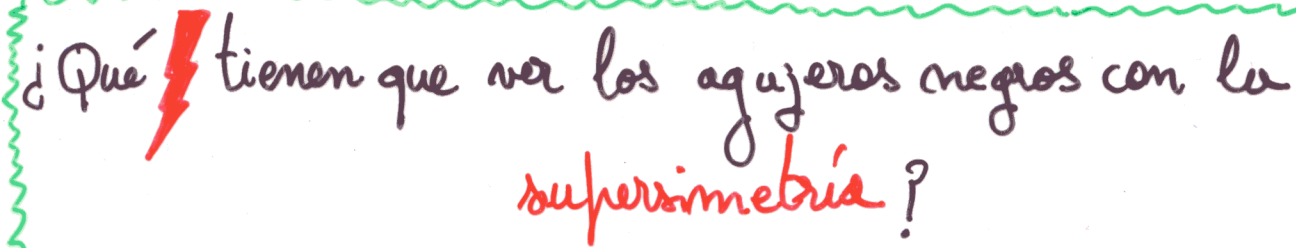 ¿Qué tienen que ver los agujeros negros con la
supersimetría?